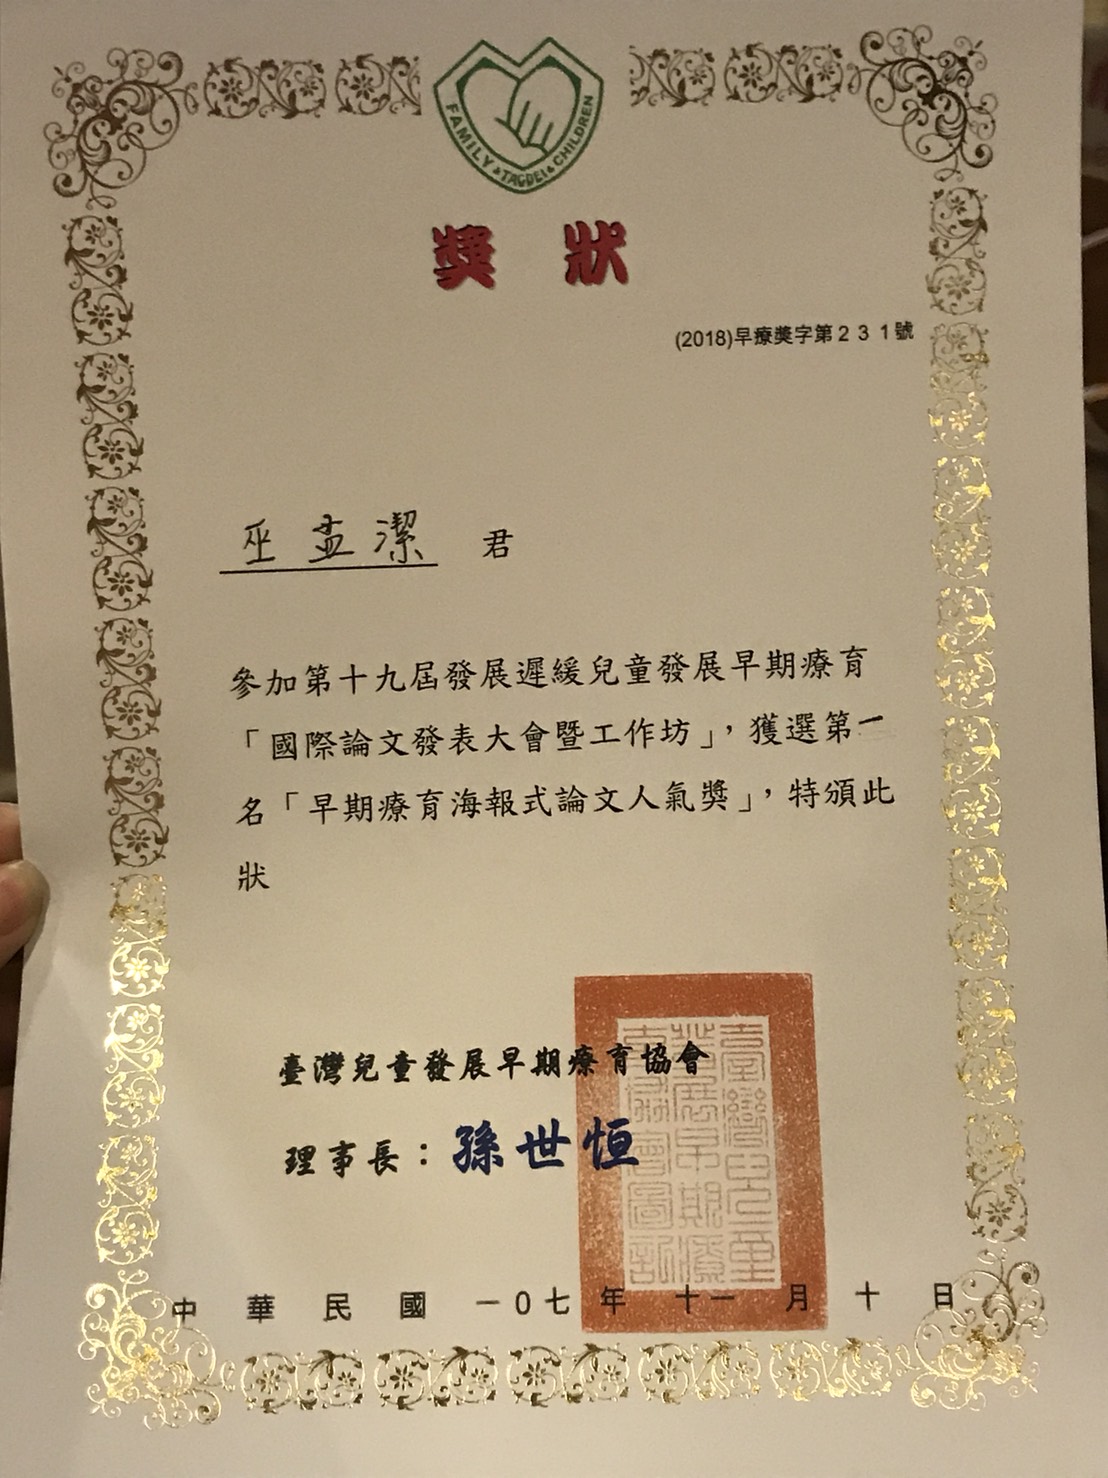 FAMILY & TAGDEI & CHILDREN
獎 狀
(2018)早療獎字第２３１號
巫 潔 君
參加第十九屆發展遲緩兒童發展早期療育
「國際論文發表大會暨工作坊」，獲選第一
名「早期療育海報式論文人氣獎」，特頒此
狀
臺灣兒童發展早期療育協會
理事長：孫世恒
臺灣兒童
發展早期療
育協會圖記
中華民國一0七年十一月十日